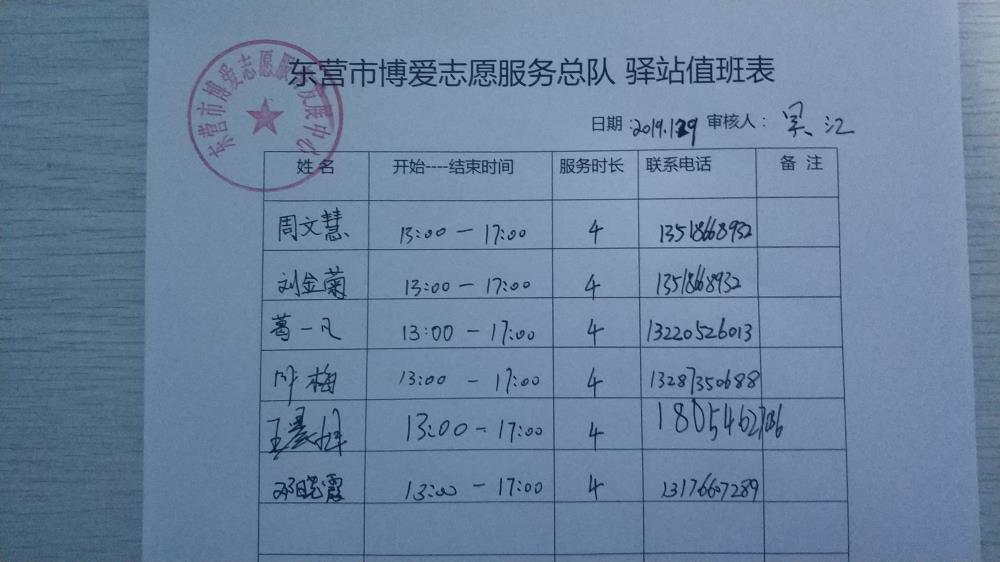 东营市博爱志愿服务总队 驿站值班表
东营市博爱志愿服务发展中心
日期:2019.1.29 审核人: 吴江
姓名 开始----结束时间 服务时长 联系电话 备注
周文慧 13:00 - 17:00 4 13518668932
刘金菊 13:00 - 17:00 4 13518668932
葛一凡 13:00 - 17:00 4 13220526013
叶梅 13:00 - 17:00 4 13287350688
王 13:00 - 17:00 4
邓晓霞 13:00 - 17:00 4 13176607289